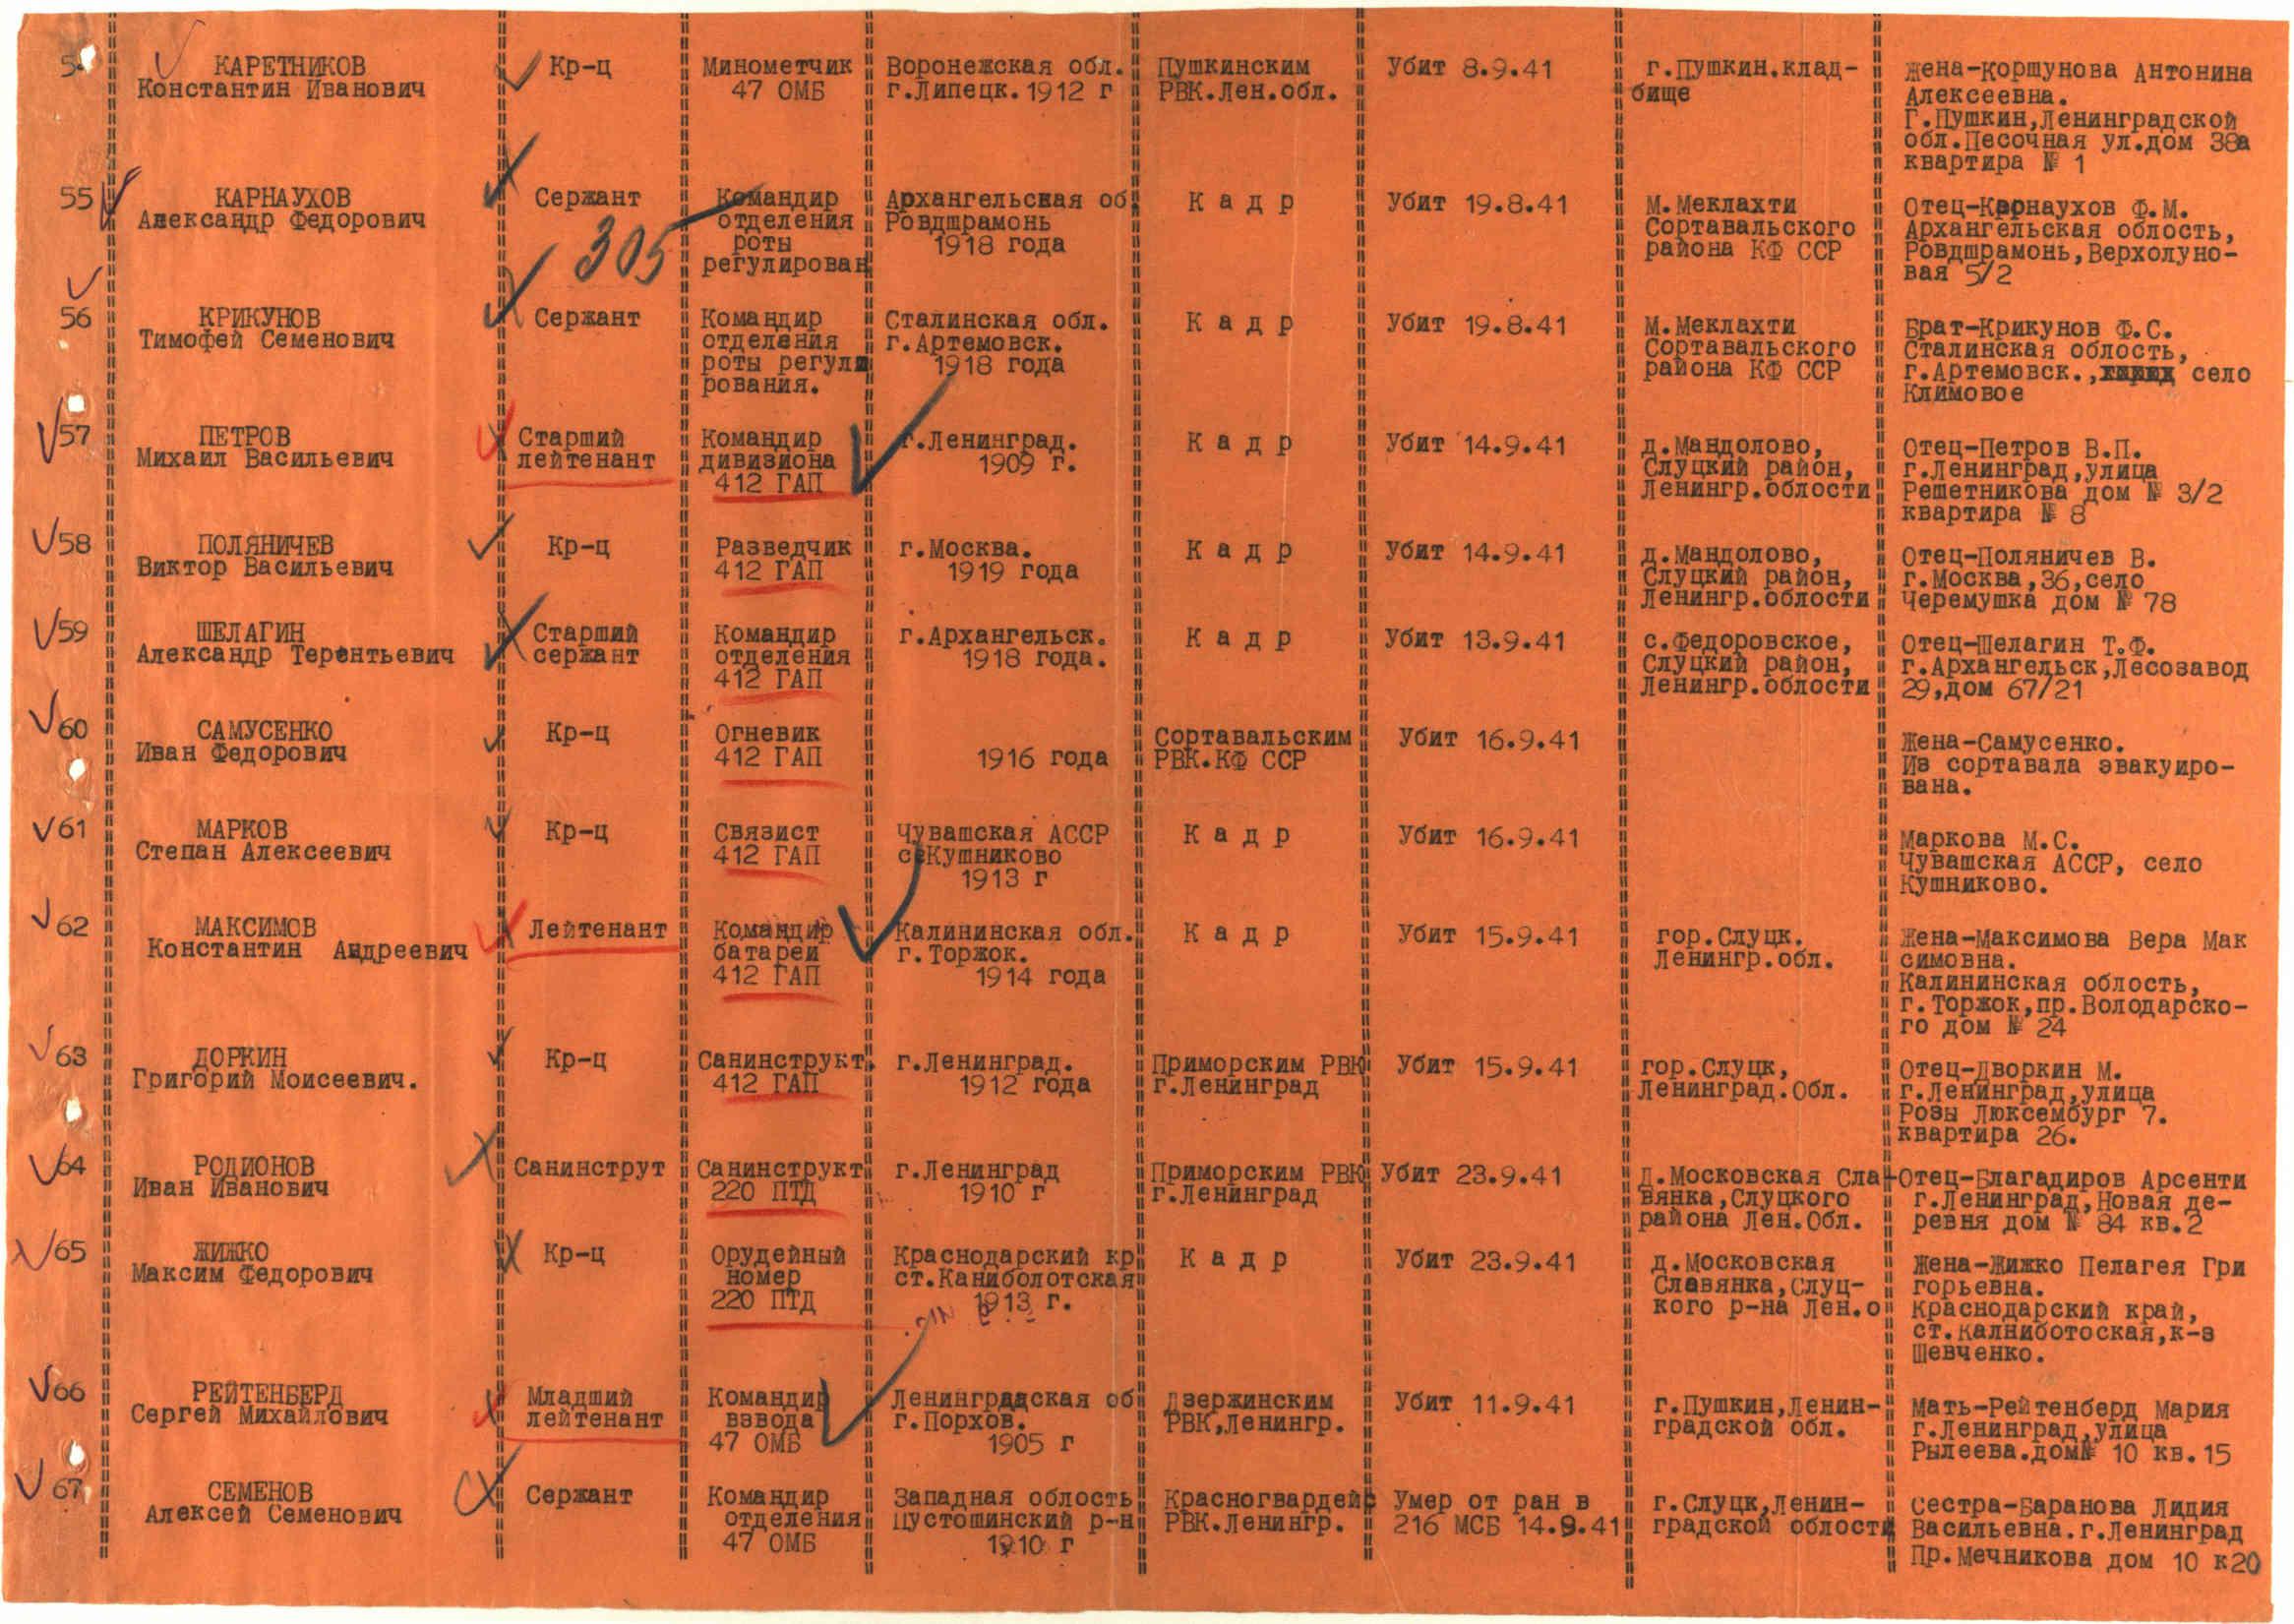 5
КАРЕТНИКОВ
Константин Иванович
Кр-ц
Минометчик
47 ОМБ
Воронежская обл.
г.Липецк. 1912 г
Пушкинским
РВК.Лен.обл.
Убит 8.9.41
г.Пушкин.клад-
бище
Жена-Коршунова Антонина
Алексеевна.
Г.Пушкин,Ленинградской
обл.Песочная ул.дом 38а
квартира № 1
55
КАРНАУХОВ
Александр Федорович
Сержант
305
Командир
отделения
роты
регулирован
Архангельская об
Ровдшрамонь
1918 года
К а д р
Убит 19.8.41
М.Меклахти
Сортавальского
района КФ ССР
Отец-Карнаухов Ф.М.
Архангельская область,
Ровдшрамонь,Верхолуно-
вая 5/2
56
КРИКУНОВ
Тимофей Семенович
Сержант
Командир
отделения
роты регули
рования.
Сталинская обл.
г.Артемовск.
1918 года
К а д р
Убит 19.8.41
М.Меклахти
Сортавальского
района КФ ССР
Брат-Крикунов Ф.С.
Сталинская облость,
г.Артемовск., село
Климовое
57
ПЕТРОВ
Михаил Васильевич
Старший
лейтенант
Командир
дивизиона
412 ГАП
г.Ленинград.
1909 г.
К а д р
Убит 14.9.41
д.Мандолово,
Слуцкий район,
Ленингр.облости
Отец-Петров В.П.
г.Ленинград,улица
Решетникова дом № 3/2
квартира № 8
58
ПОЛЯНИЧЕВ
Виктор Васильевич
Кр-ц
Разведчик
412 ГАП
г.Москва.
1919 года
К а д р
Убит 14.9.41
д.Мандолово,
Слуцкий район,
Ленингр.облости
Отец-Поляничев В.
г.Москва,36,село
Черемушка дом № 78
59
ШЕЛАГИН
Александр Терентьевич
Старший
сержант
Командир
отделения
412 ГАП
г.Архангельск.
1918 года.
К а д р
Убит 13.9.41
с.Федоровское,
Слуцкий район,
Ленингр.облости
Отец-Шелагин Т.Ф.
г.Архангельск,Лесозавод
29,дом 67/21
60
САМУСЕНКО
Иван Федорович
Кр-ц
Огневик
412 ГАП
1916 года
Сортавальским
РВК.КФ ССР
Убит 16.9.41
Жена-Самусенко.
Из сортавала эвакуиро-
вана.
61
МАРКОВ
Степан Алексеевич
Кр-ц
Связист
412 ГАП
Чувашская АССР
с.Кушниково
1913 г
К а д р
Убит 16.9.41
Маркова М.С.
Чувашская АССР, село
Кушниково.
62
МАКСИМОВ
Константин Андреевич
Лейтенант
Командир
батареи
412 ГАП
Калининская обл.
г.Торжок.
1914 года
К а д р
Убит 15.9.41
гор.Слуцк.
Ленингр.обл.
Жена-Максимова Вера Мак
симовна.
Калининская облость,
г.Торжок,пр.Володарско-
го дом № 24
63
ДОРКИН
Григорий Моисеевич.
Кр-ц
Санинструкт
412 ГАП
г.Ленинград.
1912 года
Приморским РВК
г.Ленинград
Убит 15.9.41
гор.Слуцк,
Ленинград.Обл.
Отец-Дворкин М.
г.Ленинград,улица
Розы Люксембург 7.
квартира 26.
64
РОДИОНОВ
Иван Иванович
Санинструт
Санинструкт
220 ПТД
г.Ленинград
1910 г
Приморским РВК
г.Ленинград
Убит 23.9.41
Д.Московская Сла-
вянка,Слуцкого
района Лен.Обл.
Отец-Благадиров Арсенти
г.Ленинград,Новая де-
ревня дом № 84 кв.2
65
ЖИЖКО
Максим Федорович
Кр-ц
Орудейный
номер
220 ПТД
Краснодарский кр
ст.Каниболотская
1913 г.
К а д р
Убит 23.9.41
д.Московская
Славянка,Слуц-
кого р-на Лен.о
Жена-Жижко Пелагея Гри
горьевна.
Краснодарский край,
ст.Калниботоская,к-з
Шевченко.
66
РЕЙТЕНБЕРД
Сергей Михайлович
Младший
лейтенант
Командир
взвода
47 ОМБ
Ленинградская об
г.Порхов.
1905 г
Дзержинским
РВК,Ленингр.
Убит 11.9.41
г.Пушкин,Ленин-
градской обл.
Мать-Рейтенберд Мария
г.Ленинград,улица
Рылеева.дом№ 10 кв.15
67
СЕМЕНОВ
Алексей Семенович
Сержант
Командир
отделения
47 ОМБ
Западная облость
Пустошинский р-н
1910 г
Красногвардейс
РВК.Ленингр.
Умер от ран в
216 МСБ 14.9.41
г.Слуцк,Ленин-
градской области
Сестра-Баранова Лидия
Васильевна.г.Ленинград
Пр.Мечникова дом 10 к20